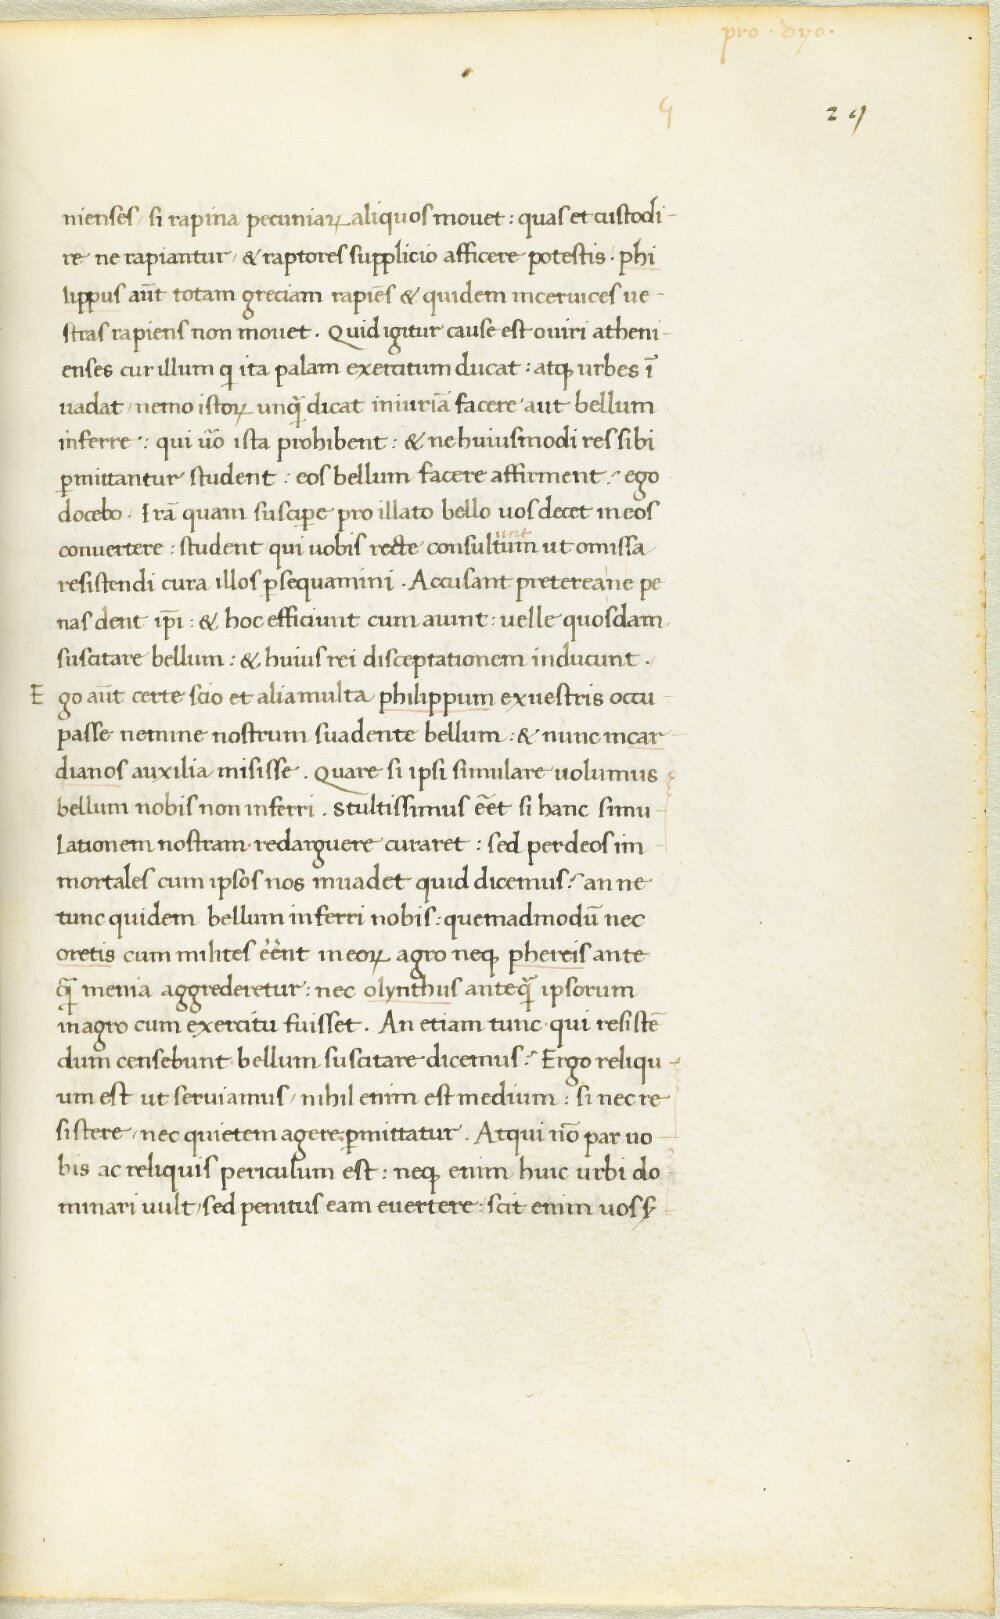 pro · dyo ·
29
nienses / si rapina pecuniaꝝ aliquos mouet : quas et custodi-
re ne rapiantur / & raptores supplicio afficere potestis · phi
lippus aūt totam greciam rapiēs & quidem inceruices ue-
stras rapiens non mouet . Quid igitur cause est o uiri atheni-
enses cur illum q̄ ita palam exercitum ducat : atqꝫ urbes ī
uadat / nemo istoꝝ unq̄̃ dicat iniuriā facere aut bellum
inferre : qui uō ista prohibent : & ne huiusmodi res sibi
ꝑmittantur student : eos bellum facere affirment ? ego
docebo · Irā quam suscipe pro illato bello uos decet in eos
conuertere : student qui uobis recte consultum unt ut omissa
resistendi cura illos ꝑsequamini . Accusant preterea ne pe
nas dent ip̄i : & hoc efficiunt cum aiunt : uelle quosdam
suscitare bellum : & huius rei disceptationem inducunt .
E go aūt certe scio et alia multa philippum ex uestris occu
passe nemine nostrum suadente bellum : & nunc in car-
dianos auxilia misisse . Quare si ipsi simulare uolumus
bellum nobis non inferri . Stultissimus eēt si hanc simu-
lationem nostram redarguere curaret : sed per deos im-
mortales cum ipsos nos inuadet quid dicemus ? an ne
tunc quidem bellum inferri nobis : quemadmodū nec
oretis cum milites eēnt in eoꝝ agro neqꝫ phereis ante
q̄̃ menia aggrederetur : nec olynthus anteq̄̃ ipsorum
in agro cum exercitu fuisset . An etiam tunc qui resistē
dum censebunt bellum suscitare dicemus ? Ergo reliqu-
um est ut seruiamus / nihil enim est medium : si nec re
sistere / nec quietem agere ꝑmittatur . Atqui nō par uo
bis ac reliquis periculum est : neqꝫ enim huic urbi do
minari uult / sed penitus eam euertere : scit enim uos